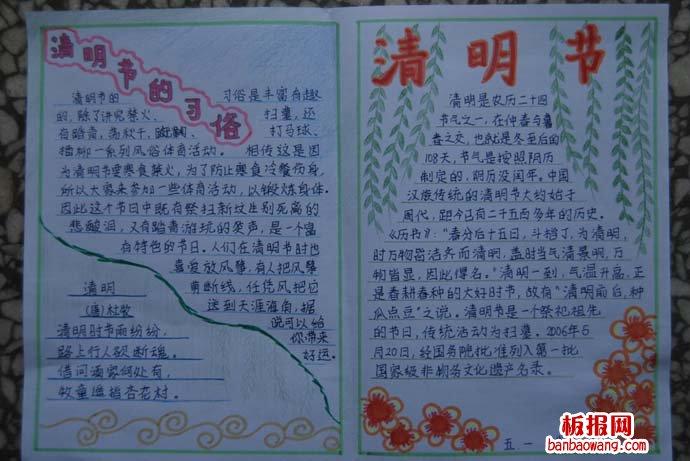 清明节的习俗
清明节的 习俗是丰富有趣
的，除了讲究禁火、 扫墓，还
有踏青、荡秋千、蹴鞠、 打马球、
插柳一系列风俗体育活动。 相传这是因
为清明节要寒食禁火，为了防止寒食冷餐伤身，
所以大家来参加一些体育活动，以锻炼身体。
因此这个节日中既有祭扫新坟生别死离的
悲酸泪，又有踏青游玩的笑声，是一个富
有特色的节日。人们在清明节时也
喜爱放风筝，有人把风筝
剪断线，任凭风把它
送到天涯海角，据
说可以给
你带来
好运。
清明
(唐)杜牧
清明时节雨纷纷，
路上行人欲断魂。
借问酒家何处有，
牧童遥指杏花村。
清明节
清明是农历二十四
节气之一，在仲春与暮
春之交，也就是冬至后的
108天，节气是按照阳历
制定的，阴历没闰年。中国
汉族传统的清明节大约始于
周代，距今已有二千五百多年的历史。
《历书》：“春分后十五日，斗指丁，为清明，
时万物皆洁齐而清明，盖时当气清景明，万
物皆显，因此得名。”清明一到，气温升高，正
是春耕春种的大好时节，故有“清明前后，种
瓜点豆”之说。清明节是一个祭祀祖先
的节日，传统活动为扫墓。2006年5
月20日，经国务院批准列入第一批
国家级非物质文化遗产名录。
五.一
板报网
banbaowang.com